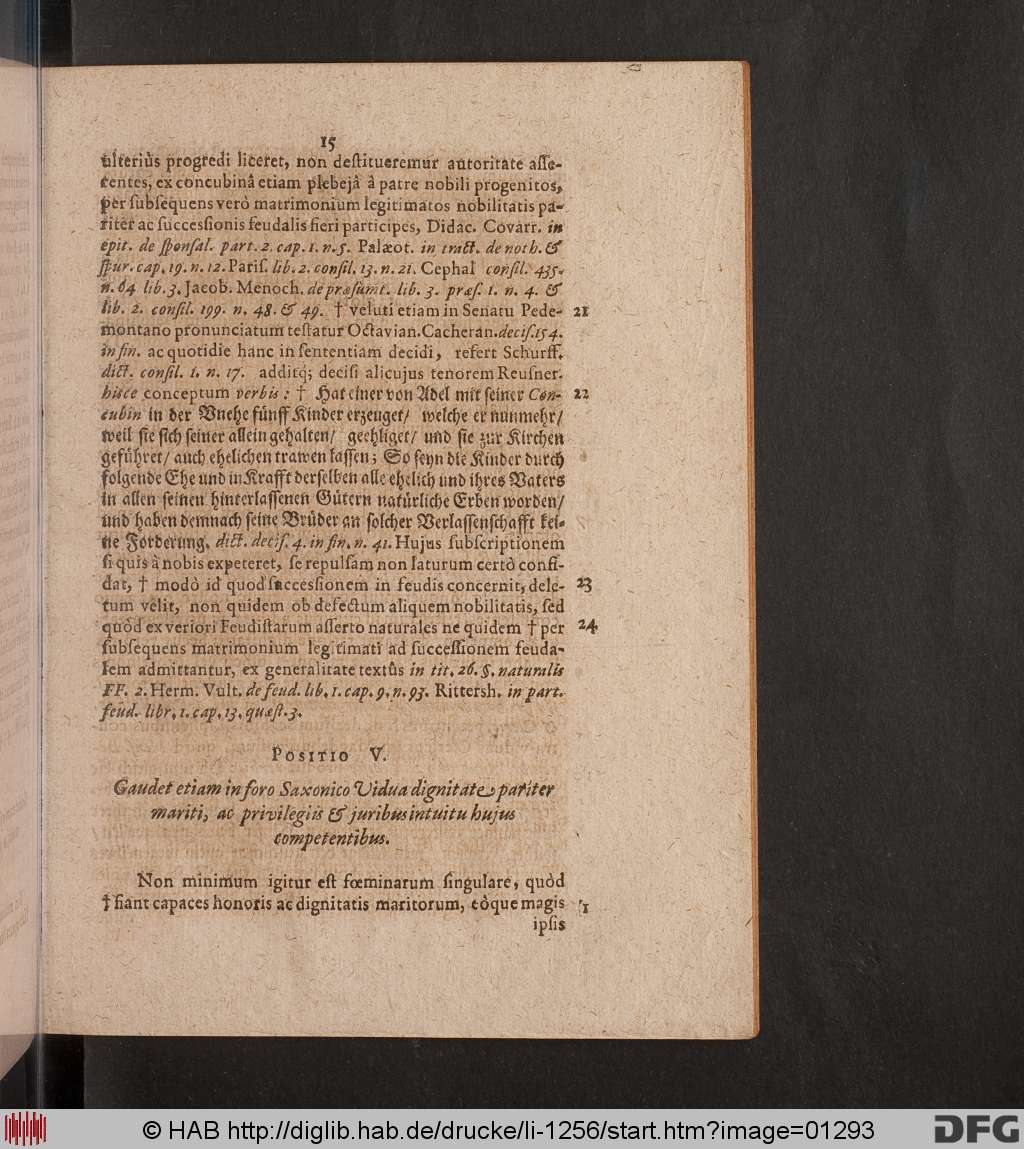 15
ulteriùs progredi liceret, non destitueremur autoritate asse-
rentes, ex concubinâ etiam plebejâ à patre nobili progenitos,
per subsequens verò matrimonium legitimatos nobilitatis pa-
riter ac successionis feudalis fieri participes, Didac. Covarr. in
epit. de sponsal. part. 2. cap. 1. n. 5. Palæot. in tract. de noth. &
spur. cap. 19. n. 12. Paris. lib. 2. consil. 13. n. 21. Cephal consil. 435.
n. 64 lib. 3. Jacob. Menoch. de præsumt. lib. 3. præs. 1. n. 4. &
lib. 2. consil. 199. n. 48. & 49. † veluti etiam in Senatu Pede- 21
montano pronunciatum testatur Octavian. Cacheran. decis. 154.
in fin. ac quotidie hanc in sententiam decidi, refert Schurff.
dict. consil. 1. n. 17. additq; decisi alicujus tenorem Reusner.
hisce conceptum verbis: † Hat einer von Adel mit seiner Con- 22
cubin in der Vnehe fünff Kinder erzeuget/ welche er nunmehr/
weil sie sich seiner allein gehalten/ geehliget/ und sie zur Kirchen
geführet/ auch ehelichen trawen lassen; So seyn die Kinder durch
folgende Ehe und in Krafft derselben alle ehelich und ihres Vaters
in allen seinen hinterlassenen Gütern natürliche Erben worden/
und haben demnach seine Brüder an solcher Verlassenschafft kei-
ne Forderung. dict. decis. 4. in fin. n. 41. Hujus subscriptionem
si quis à nobis expeteret, se repulsam non laturum certò confi-
dat, † modò id quod successionem in feudis concernit, dele- 23
tum velit, non quidem ob defectum aliquem nobilitatis, sed
quòd ex veriori Feudistarum asserto naturales ne quidem † per 24
subsequens matrimonium legitimati ad successionem feuda-
lem admittantur, ex generalitate textûs in tit. 26. §. naturalis
FF. 2. Herm. Vult. de feud. lib. 1. cap. 9. n. 93. Rittersh. in part.
feud. libr. 1. cap. 13. quæst. 3.
POSITIO V.
Gaudet etiam in foro Saxonico Vidua dignitate pariter
mariti, ac privilegiis & juribus intuitu hujus
competentibus.
Non minimum igitur est fœminarum singulare, quòd
† fiant capaces honoris ac dignitatis maritorum, eòque magis 1
ipsis
© HAB http://diglib.hab.de/drucke/li-1256/start.htm?image=01293
DFG